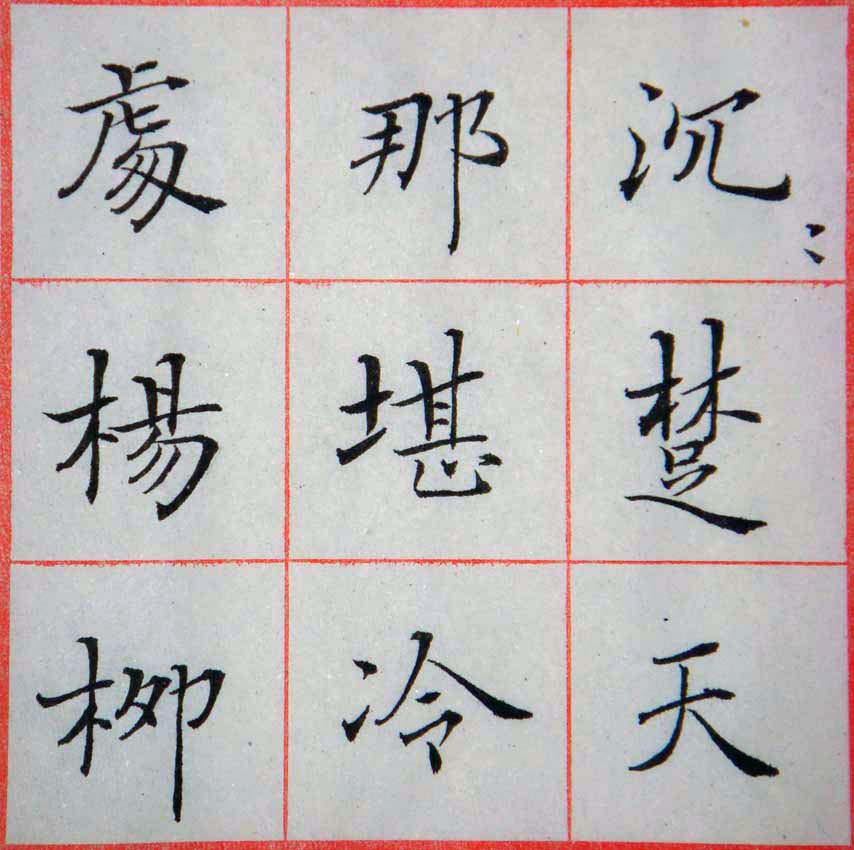 沉〻楚天
那堪冷
處楊柳